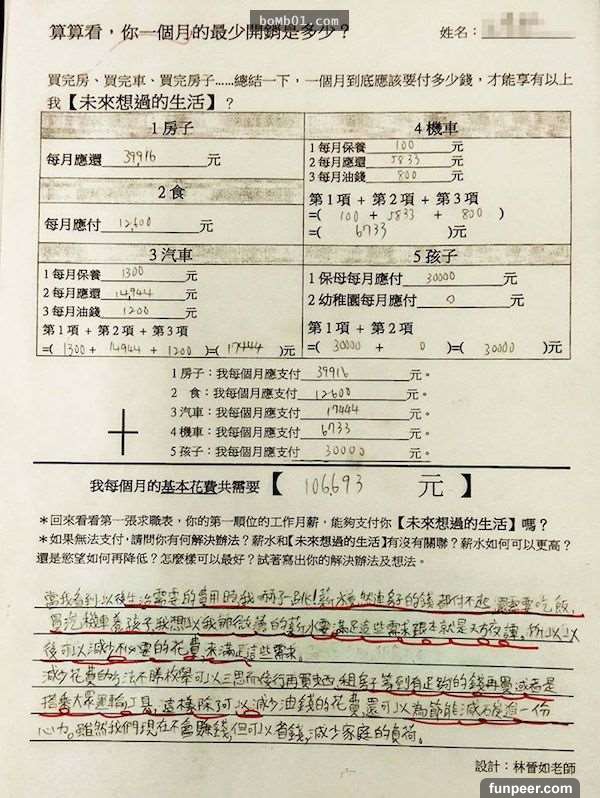 boMb01.com
算算看,你一個月的最少開銷是多少?
姓名:
買完房、買完車、買完房子......總結一下,一個月到底應該要付多少錢,才能享有以上
我【未來想過的生活】?
1 房子
每月應還 39,916 元
2 食
每月應付 12,600 元
3 汽車
1 每月保養 1300 元
2 每月應還 14,944 元
3 每月油錢 1200 元
第 1 項 + 第 2 項 + 第 3 項
=( 1300 + 14944 + 1200 )=( 17444 )元
4 機車
1 每月保養 100 元
2 每月應還 5833 元
3 每月油錢 800 元
第 1 項 + 第 2 項 + 第 3 項
=( 100 + 5833 + 800 )
=( 6733 )元
5 孩子
1 保母每月應付 30000 元
2 幼稚園每月應付 0 元
第 1 項 + 第 2 項
=( 30000 + 0 )=( 30000 )元
1 房子:我每個月應支付 39916 元。
2 食:我每個月應支付 12600 元。
3 汽車:我每個月應支付 17444 元。
4 機車:我每個月應支付 6733 元。
5 孩子:我每個月應支付 30000 元。
+
我每個月的基本花費共需要【 106693 元 】
*回來看看第一張求職表,你的第一順位的工作月薪,能夠支付你【未來想過的生活】嗎?
*如果無法支付,請問你有何解決辦法?薪水和【未來想過的生活】有沒有關聯?薪水如何可以更高?
還是慾望如何再降低?怎麼樣可以最好?試著寫出你的解決辦法及想法。
當我看到以後生活需要的費用時我嚇了一跳!薪水竟然連房子的錢都付不起,還需要吃飯,
買汽機車養孩子,我想以我那微薄的薪水要滿足這些需求根本就是天方夜譚,所以以
後可以減少不必要的花費,來滿足這些需求。
減少花費的方法不勝枚舉可以三思而後行再買東西,租房子等到有足夠的錢再買,或者是
搭乘大眾運輸工具,這樣除了可以減少油錢的花費,還可以為節能減碳盡一份
心力。雖然我們現在不會賺錢,但可以省錢,減少家庭的負荷。
設計:林晉如老師
funpeer.com